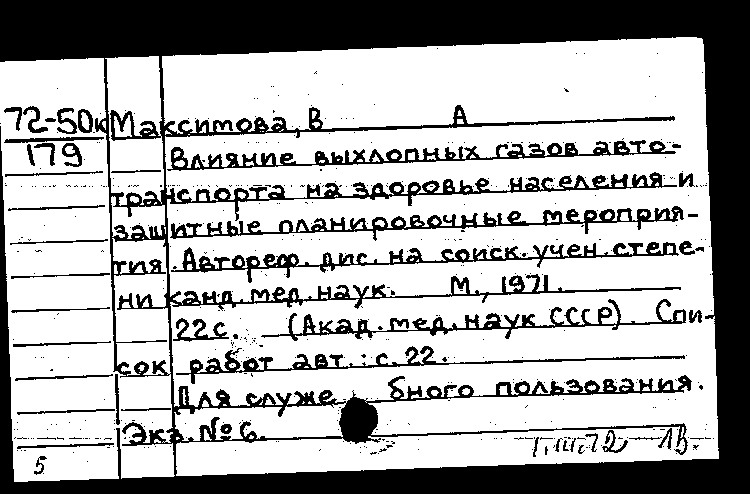 72-50к Максимова, В А
179 Влияние выхлопных газов авто-
транспорта на здоровье населения и
защитные планировочные мероприя-
тия. Автореф. дис. на соиск. учен. степе-
ни канд. мед. наук. М., 1971.
22 с. (Акад. мед. наук СССР). Спи-
сок работ авт.: с. 22.
Для служебного пользования.
Экз. № 6.
5 1.III.72 1В.